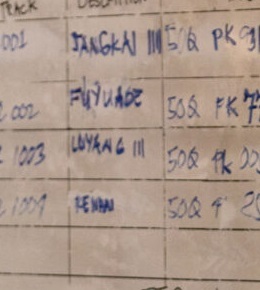 TRACK DESCRIPTION
001 JANGKAI III 50Q PK 91
2 002 FUYUAOE 50Q FK 77
2 1003 LUYANG III 50Q PK 00
2 1009 50Q 9 25